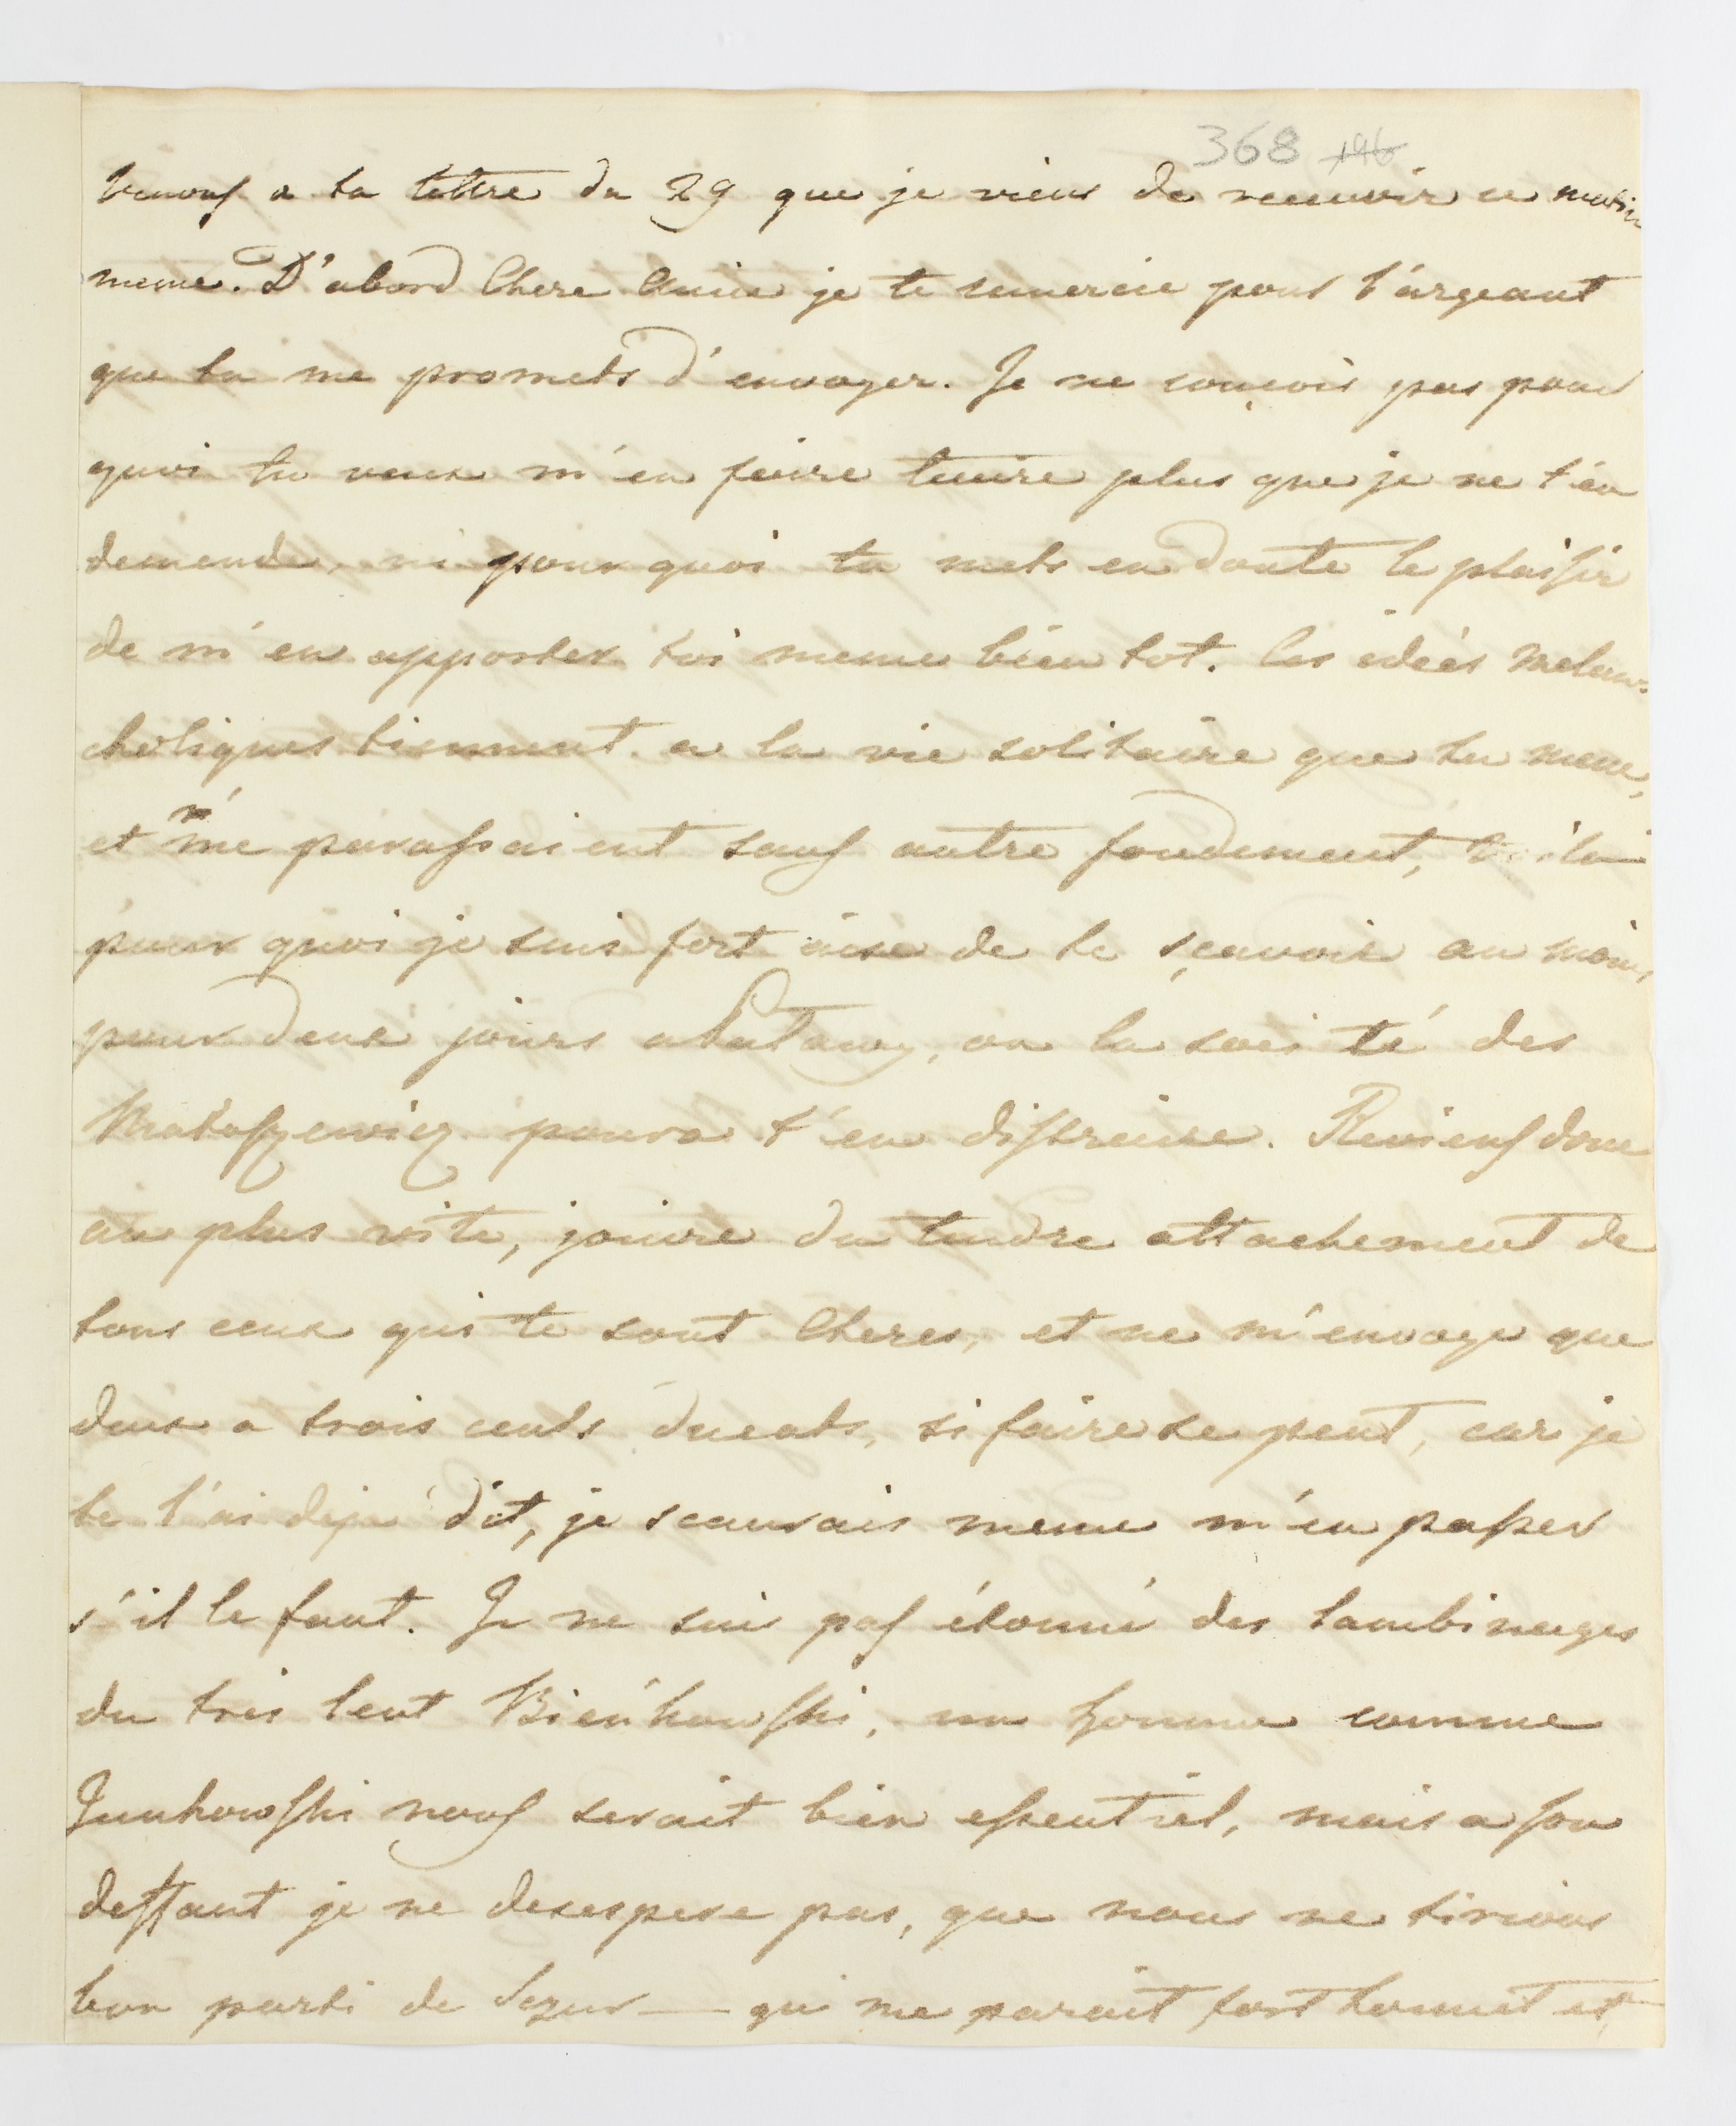 368 196
Venons a ta lettre du 29 que je viens de recevoir ce matin
meme. D'abord Chere Amie je te remercie pour l'argeant
que tu me promets d'envoyer. Je ne conçois pas pour
quoi tu veux m'en faire tenire plus que je ne t'en
demande, ni pourquoi tu mets en doute le plaisir
de m'en apporter toi meme bien tot. Ces idées melan-
choliques tiennent a la vie solitaire que tu mene,
et me parassaient sans autre fondement, Voila
pour quoi je suis fort aise de te sçavoir au moins
pour deux jours a Putawy, ou la societé des
Matassewicz poura t'en distraire. Reviens donc
au plus vite, jouire du tendre attachement de
tous ceux qui te sont Cheres, et ne m'envoye que
deux a trois cents ducats, si faire se peut, car je
te l'ai deja dit, je scaurais meme m'en passer
s'il le faut. Je ne suis pas étonné des lambinages
du tres lent Bieńkowski, un homme comme
Junkowski nous serait bien essentiel, mais a son
deffaut je ne desespere pas, que nous ne tirions
bon parti de qui me parait fort honnet et